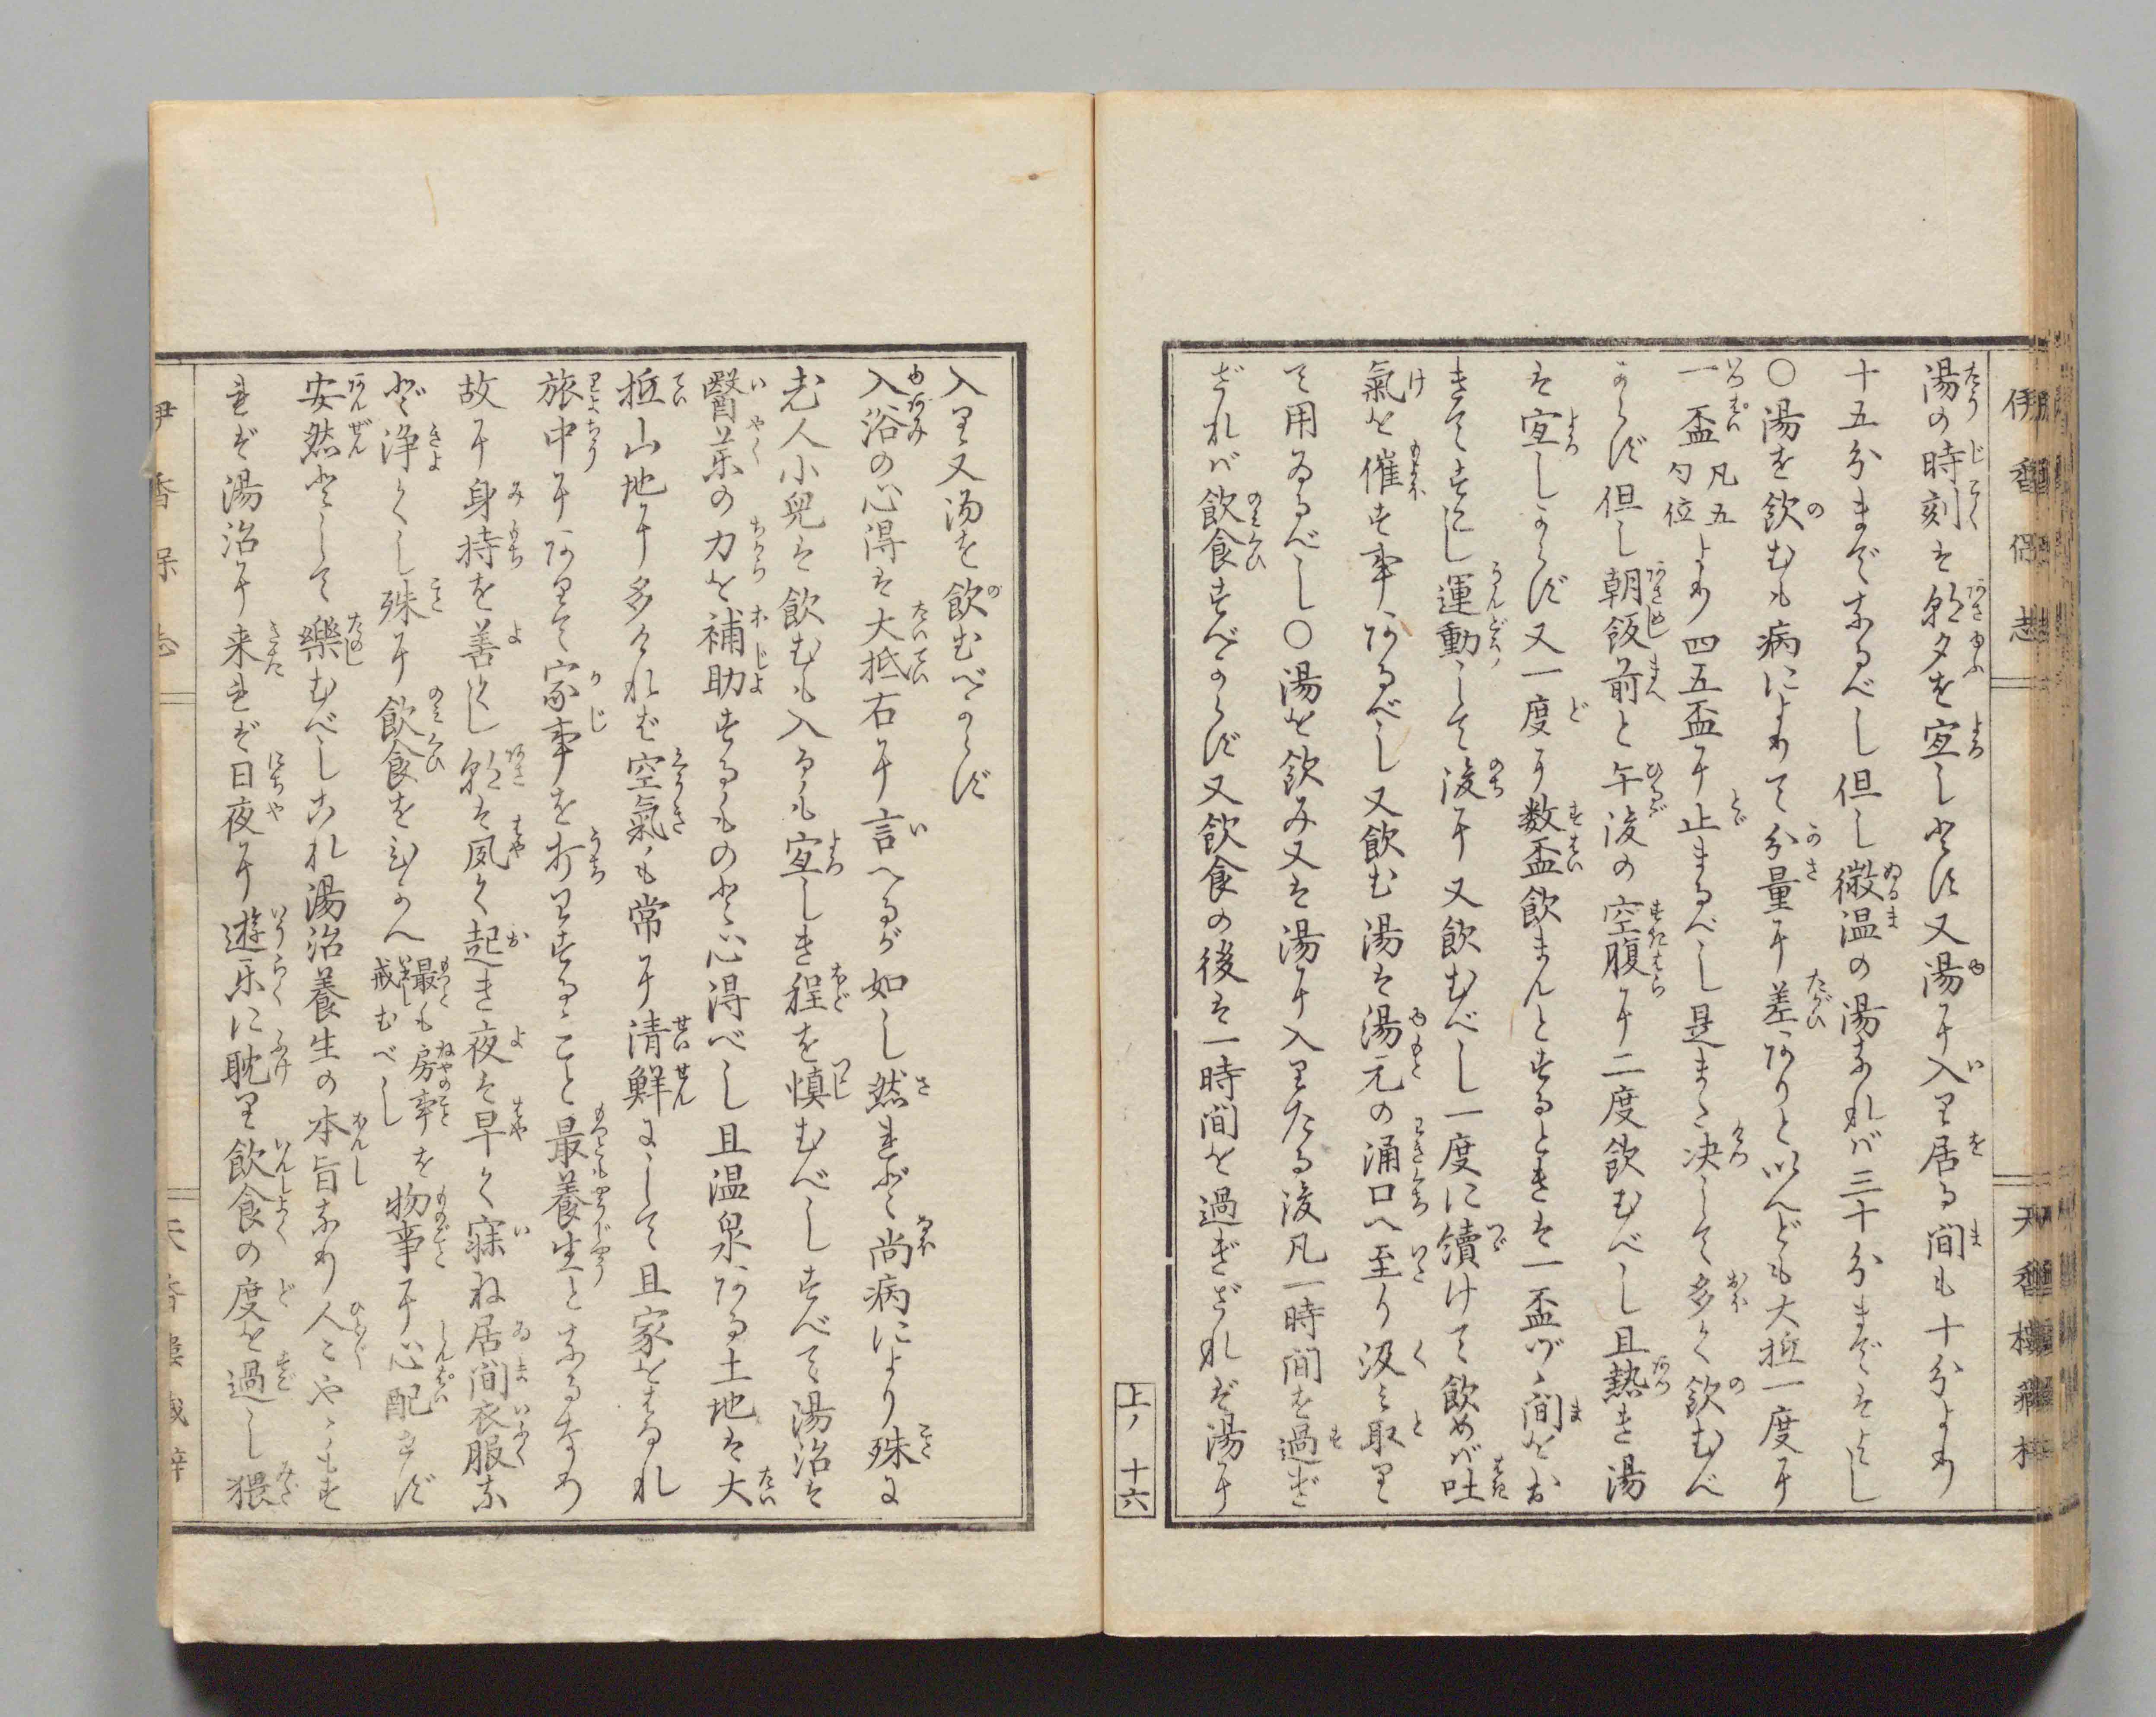 伊香保志
天香楼蔵梓
湯の時刻は朝夕を宜しとす又湯に入り居る間も十分より
十五分までなるべし但し微温の湯なれバ三十分まではよし
〇湯を飲むも病によりて分量に差ありと以へども大抵一度に
一盃凡五勺位より四五盃に止まるべし是また决して多く飲むべ
からず但し朝飯前と午後の空腹に二度飲むべし且熱き湯
は宜しからず又一度に数盃飲まんとするときは一盃づゝ間をお
きてすこし運動して後に又飲むべし一度に續けて飲めバ吐
氣を催す事あるべし又飲む湯は湯元の涌口へ至り汲み取り
て用ゐるべし〇湯を飲み又は湯に入りたる後凡一時間を過ぎ
ざれバ飲食すべからず又飲食の後は一時間を過ぎざれば湯に
上ノ十六
入り又湯を飲むべからず
入浴の心得は大抵右に言へるが如し然れども尚病により殊に
老人小兒は飲むも入るも宜しき程を慎むべしすべて湯治は
醫薬の力を補助するものと心得べし且温泉ある土地は大
抵山地に多ければ空氣も常に清鮮にして且家をはなれ
旅中にありて家事を打わするゝこと最養生となるなり
故に身持を善くし朝は夙く起き夜は早く寐ね居間衣服な
ど浄くし殊に飲食をひかへ最も房事を戒むべし物事に心配せず
安然として樂むべしこれ湯治養生の本旨なり人〻やゝもす
れば湯治に来れば日夜に遊樂に耽り飲食の度を過し猥
伊香保志
天香楼蔵梓